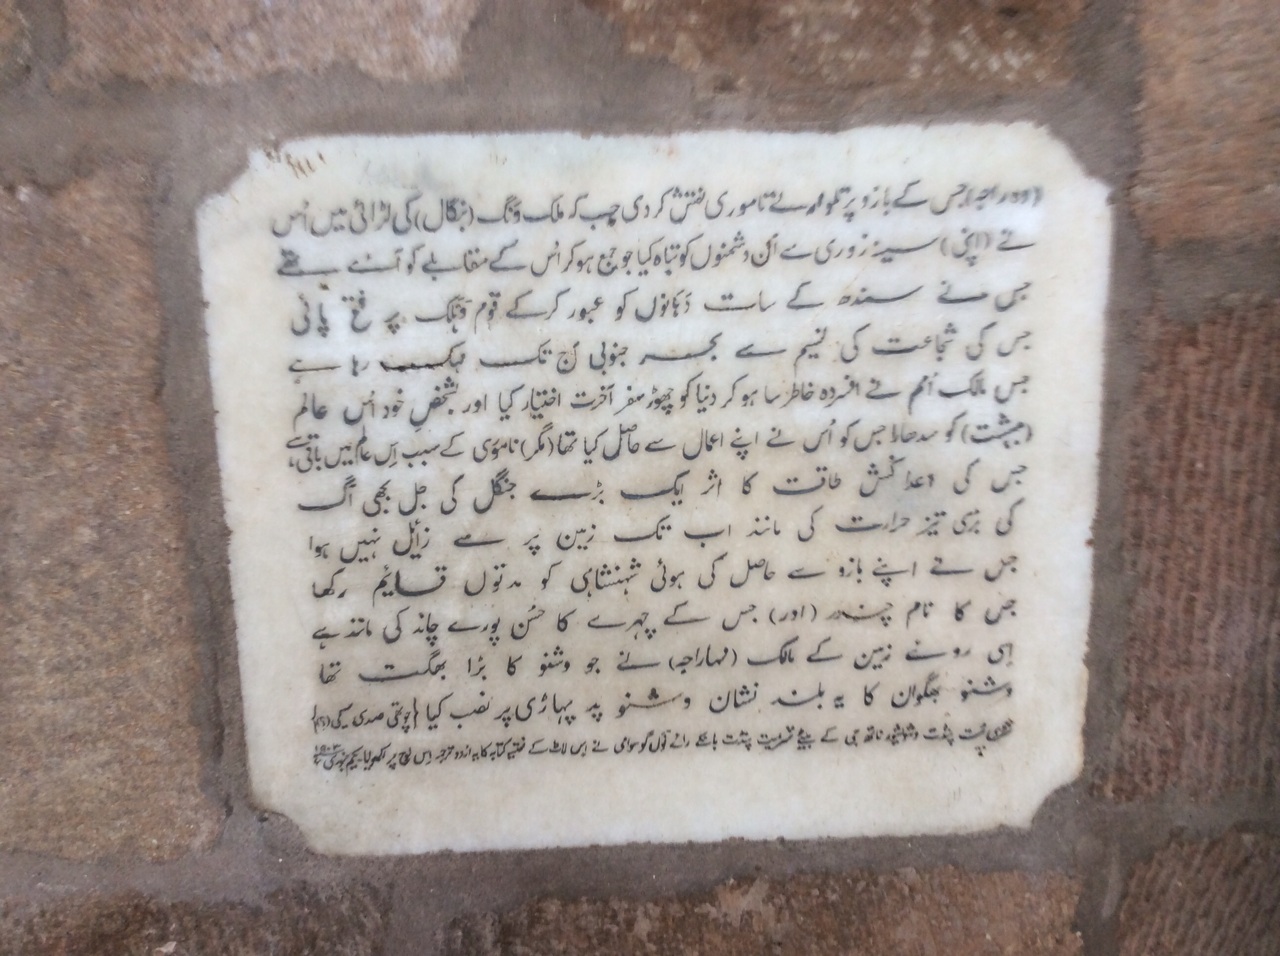 (وہ راجہ) جس کے بازو پر تلوار نے ناموری نقش کردی جب کہ ملک ونگ (بنگال) کی لڑائی میں اُس
نے (اپنی) سینہ زوری سے اُن دشمنوں کو تباہ کیا جو جمع ہو کر اُس کے مقابلے کو آئے تھے
جس نے سندھ کے سات دہانوں کو عبور کرکے قوم وہلک پر فتح پائی
جس کی شجاعت کی نسیم سے بحر جنوبی آج تک مہک رہا ہے
جس مالک اُمم نے افسردہ خاطر سا ہو کر دنیا کو چھوڑ سفر آخرت اختیار کیا اور بشخصِ خود اُس عالم
(بہشت) کو سدھارا جس کو اُس نے اپنے اعمال سے حاصل کیا تھا (مگر) ناموری کے سبب اِس عالم میں باقی ہے
جس کی اعدا کُش طاقت کا اثر ایک بڑے جنگل کی جل بجھی آگ
کی بڑی تیز حرارت کی مانند اب تک زمین پر سے زائل نہیں ہوا
جس نے اپنے بازو سے حاصل کی ہوئی شہنشاہی کو مدتوں قایم رکھا
جس کا نام چندر (اور) جس کے چہرے کا حُسن پورے چاند کی مانند ہے
اِسی روئے زمین کے مالک (مہاراجہ) نے جو وشنو کا بڑا بھگت تھا
وشنو بھگوان کا یہ بلند نشان وشنو پد پہاڑی پر نصب کیا {چوتھی صدی عیسوی}
پنڈت وشویشور ناتھ جی کے بیٹے پنڈت بانکے رائے نول گوسوامی نے اس لاٹ کے کتبہ کا یہ اردو ترجمہ اِس لوح پر لکھوایا یکم جنوری ۱۹۰۳